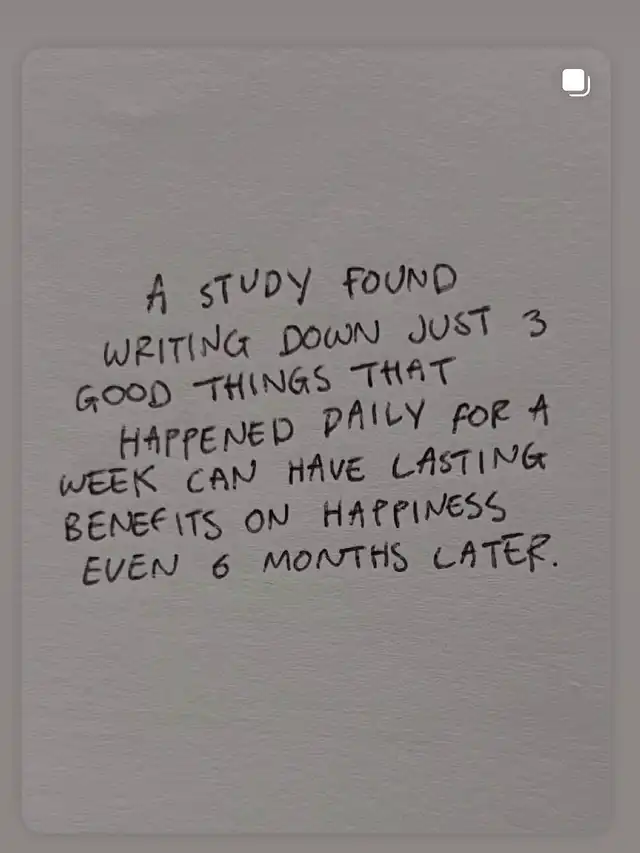 A STUDY FOUND
WRITING DOWN JUST 3
GOOD THINGS THAT
HAPPENED DAILY FOR A
WEEK CAN HAVE LASTING
BENEFITS ON HAPPINESS
EVEN 6 MONTHS LATER.